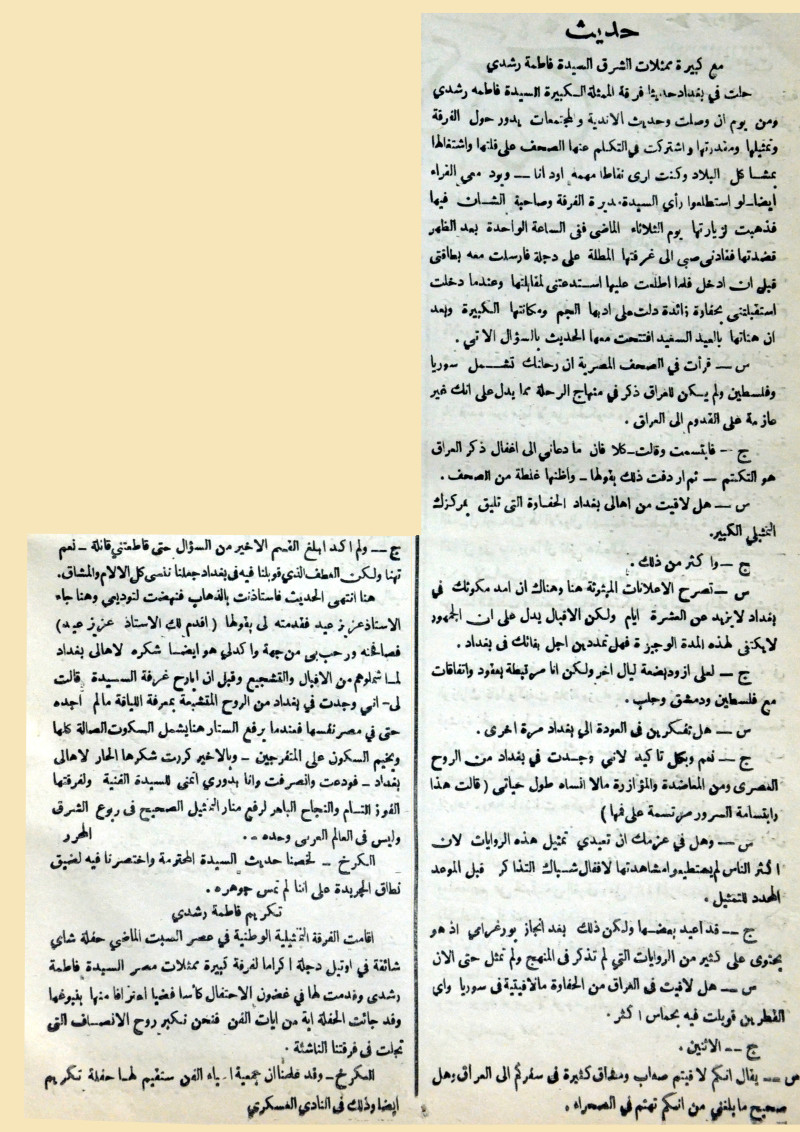 حديث
مع كبيرة ممثلات الشرق السيدة فاطمة رشدي
حلت في بغداد حديثا فرقة الممثلة الكبيرة السيدة فاطمه رشدي
ومن يوم ان وصلت وحديث الاندية والمجتمعات يدور حول الفرقة
وتمثيلها ومقدرتها واشتركت في التكلم عنها الصحف على قلتها واشتغالها
بمشاكل البلاد وكنت ارى نقاطا مهمه اود انا — ويود معي القراء
ايضا — لو استطلعوا رأي السيدة مديرة الفرقة وصاحبة الشان فيها
فذهبت لزيارتها يوم الثلاثاء الماضي ففي الساعة الواحدة بعد الظهر
قصدتها فقادني صبي الى غرفتها المطلة على دجلة فارسلت معه بطاقتي
قبل ان ادخل فلما اطلعت عليها استدعتني لمقابلتها وعندما دخلت
استقبلتني بحفاوة زائدة دلت على ادبها الجم ومكانتها الكبيرة وبعد
ان هناتها بالعيد السعيد افتتحت معها الحديث بالسؤال الآتي .
س — قرأت في الصحف المصرية ان رحلتك تشمل سوريا
وفلسطين ولم يكن للعراق ذكر في منهاج الرحلة مما يدل على انك غير
عازمة على القدوم الى العراق .
ج — فابتسمت وقالت - كلا فان ما دعاني الى اغفال ذكر العراق
هو التكتم — ثم اردفت ذلك بقولها - واظنها غلطة من الصحف .
س — هل لاقيت من اهالى بغداد الحفاوة التى تليق بمركزك
التمثيلي الكبير.
ج — واكثر من ذلك .
س — تصرح الاعلانات المبثوثة هنا وهناك ان امد مكوثك في
بغداد لا يزيد عن العشرة ايام ولكن الاقبال يدل على ان الجمهور
لا يكتفى لهذه المدة الوجيزة فهل تمددين اجل بقائك في بغداد .
ج — لعلى ازود بضعة ليال اخر ولكن انا مرتبطة بعقود واتفاقات
مع فلسطين ودمشق وحلب .
س — هل تفكرين في العودة الى بغداد مرة اخرى .
ج — نعم وبكل تاكيد لانى وجدت في بغداد من الروح
العصرى ومن المعاضدة والمؤازرة مالا انساه طول حياتي ( قالت هذا
وابتسامة السرور مرتسمة على فمها )
س — وهل في عزمك ان تعيدي تمثيل هذه الروايات لان
اكثر الناس لم يستطيعوا مشاهدتها لاقفال شباك التذاكر قبل الموعد
المحدد للتمثيل .
ج — قد اعيد بعضها ولكن ذلك بعد انجاز بورغرامي اذ هو
يحتوى على كثير من الروايات التي لم تذكر في المنهج ولم تمثل حتى الان
س — هل لاقيت فى العراق من الحفاوة مالاقيتيه فى سوريا واي
القطرين قوبلت فيه بحماس اكثر .
ج — الاثنين .
س — يقال انكم لاقيتم صعاب ومشاق كثيرة في سفركم الى العراق وهل
صحيح ما بلغني من انكم تهتم في الصحراء .
ج — ولم اكد ابلغ القسم الاخير من السؤال حتى قاطعتني قائلة — نعم
تهنا ولكن العطف الذي قوبلنا فيه فى بغداد جعلنا ننسى كل الالام والمشاق.
هنا انتهى الحديث فاستاذنت بالذهاب فنهضت لتوديعى وهنا جاء
الاستاذ عزيز عيد فقدمته لى بقولها ( اقدم لك الاستاذ عزيز عيد )
فصافحته ورحب بي من جهة واكد لي هو ايضا شكره لاهالى بغداد
لما شملوهم من الاقبال والتشجيع وقبل ان ابارح غرفة السيدة قالت
لى - اني وجدت في بغداد من الروح المتشبعة بمعرفة اللياقة مالم اجده
حتى في مصر نفسها فعندما يرفع الستار هنا يشمل السكوت الصالة كلها
ويخيم السكون على المتفرجين — وبالاخير كررت شكرها الحار لاهالى
بغداد — فودعت وانصرفت وانا بدوري اتمنى للسيدة الفنية ولفرقتها
الفوز التام والنجاح الباهر لرفع منار التمثيل الصحيح فى ربوع الشرق
وليس فى العالم العربى وحده .. المحرر
الكرخ — لخصنا حديث السيدة المحترمة واختصرنا فيه لضيق
نطاق الجريدة على اننا لم نمس جوهره .
تكريم فاطمة رشدي
اقامت الفرقة التمثيلية الوطنية في عصر السبت الماضي حفلة شاي
شائقة في اوتيل دجلة اكراما لفرقة كبيرة ممثلات مصر السيدة فاطمة
رشدى وقدمت لها في غضون الاحتفال كأسا فضيا اعترافا منها بنبوغها
وقد جائت الحفلة اية من ايات الفن فنحن نكبر روح الانصاف التى
تجلت فى فرقتنا الناشئة .
الكرخ — وقد علمنا ان جمعية احياء الفن ستقيم لها حفلة تكريم
ايضا وذلك فى النادي العسكري